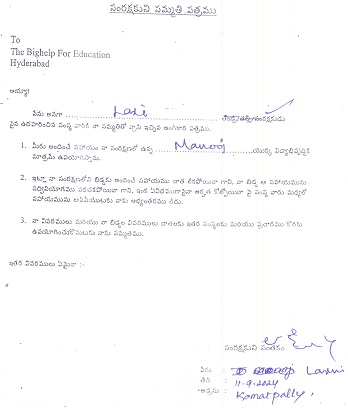 సంరక్షకుని సమ్మతి పత్రము
To
The Bighelp For Education
Hyderabad
అయ్యా!
నేను అనగా Laxi తండ్రి/తల్లి/సంరక్షకుడు
పైన ఉదహరించిన సంస్థ వారికి నా సమ్మతితో వ్రాసి ఇచ్చిన అంగీకార పత్రము.
1. మీరు అందించే సహాయం నా సంరక్షణలో ఉన్న Manooj యొక్క విద్యాభివృద్ధికి
మాత్రమే ఉపయోగిస్తాము.
2. ఇట్లా నా సంరక్షణలోని బిడ్డకు అందించే సహాయము దాత లేకపోయినా గాని, నా బిడ్డ ఆ సహాయమును
సద్వినియోగము పరచకపోయినా గాని, ఇంక ఏవిధముగానైనా అర్హత కోల్పోయినా పై సంస్థ వారు మధ్యలో
సహాయమును ఆపివేయుటకు నాకు అభ్యంతరము లేదు.
3. నా వివరములు మరియు నా బిడ్డల వివరములు దాతలకు ఇతర సంస్థలకు మరియు ప్రచారము కొరకు
ఉపయోగించుకొనుటకు నాకు సమ్మతము.
ఇతర వివరములు ఏమైనా :-
సంరక్షకుని సంతకం
పేరు : Laxmi
తేది : 11-9-2024
అడ్రసు : Komatpally,